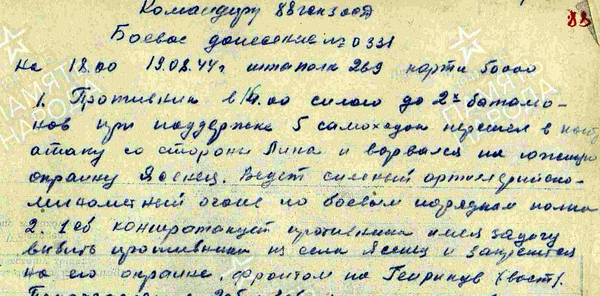 88
Командиру 88 гв.
Боевое донесение № 0331
на 18.00 19.08.44г штаполк 269 карта 50000
1. Противник в 14.00 силою до 2х батальо-
нов при поддержке 5 самоходок перешел в контр
атаку со стороны Липа и ворвался на южную
окраину Ясенец. Ведет сильный артиллерийско-
минометный огонь по боевым порядкам полка
2. 1 сб контратакует противника имея задачу
выбить противника из села Ясенец и закрепится
на его окраине, фронтом на Генрикув (вост).
ПАМЯТЬ
НАРОДА